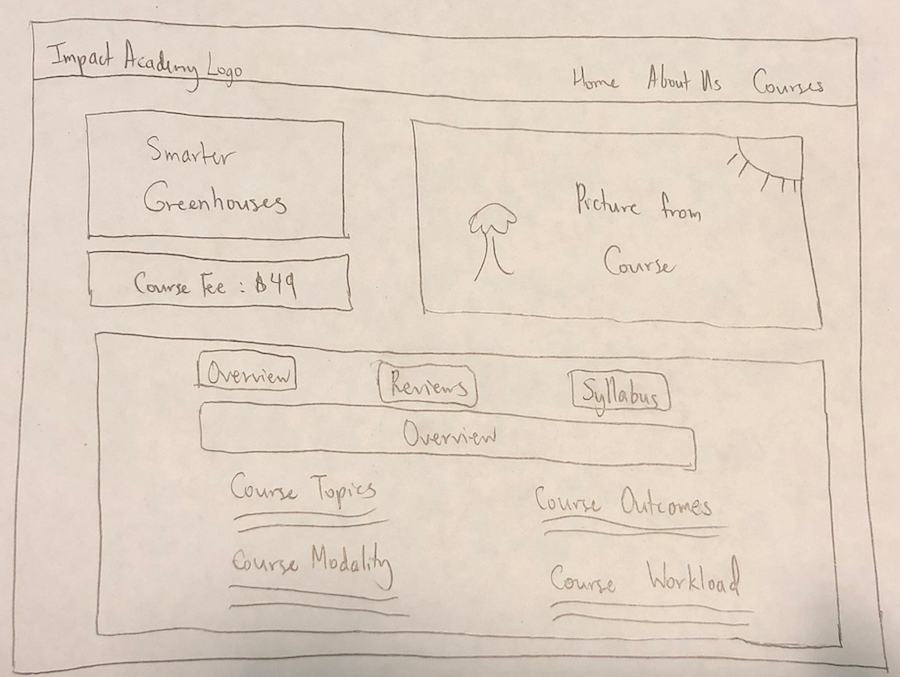 Impact Academy Logo
Home About Us Courses
Smarter
Greenhouses
Course Fee : $49
Picture from
Course
Overview Reviews Syllabus
Overview
Course Topics
Course Outcomes
Course Modality
Course Workload